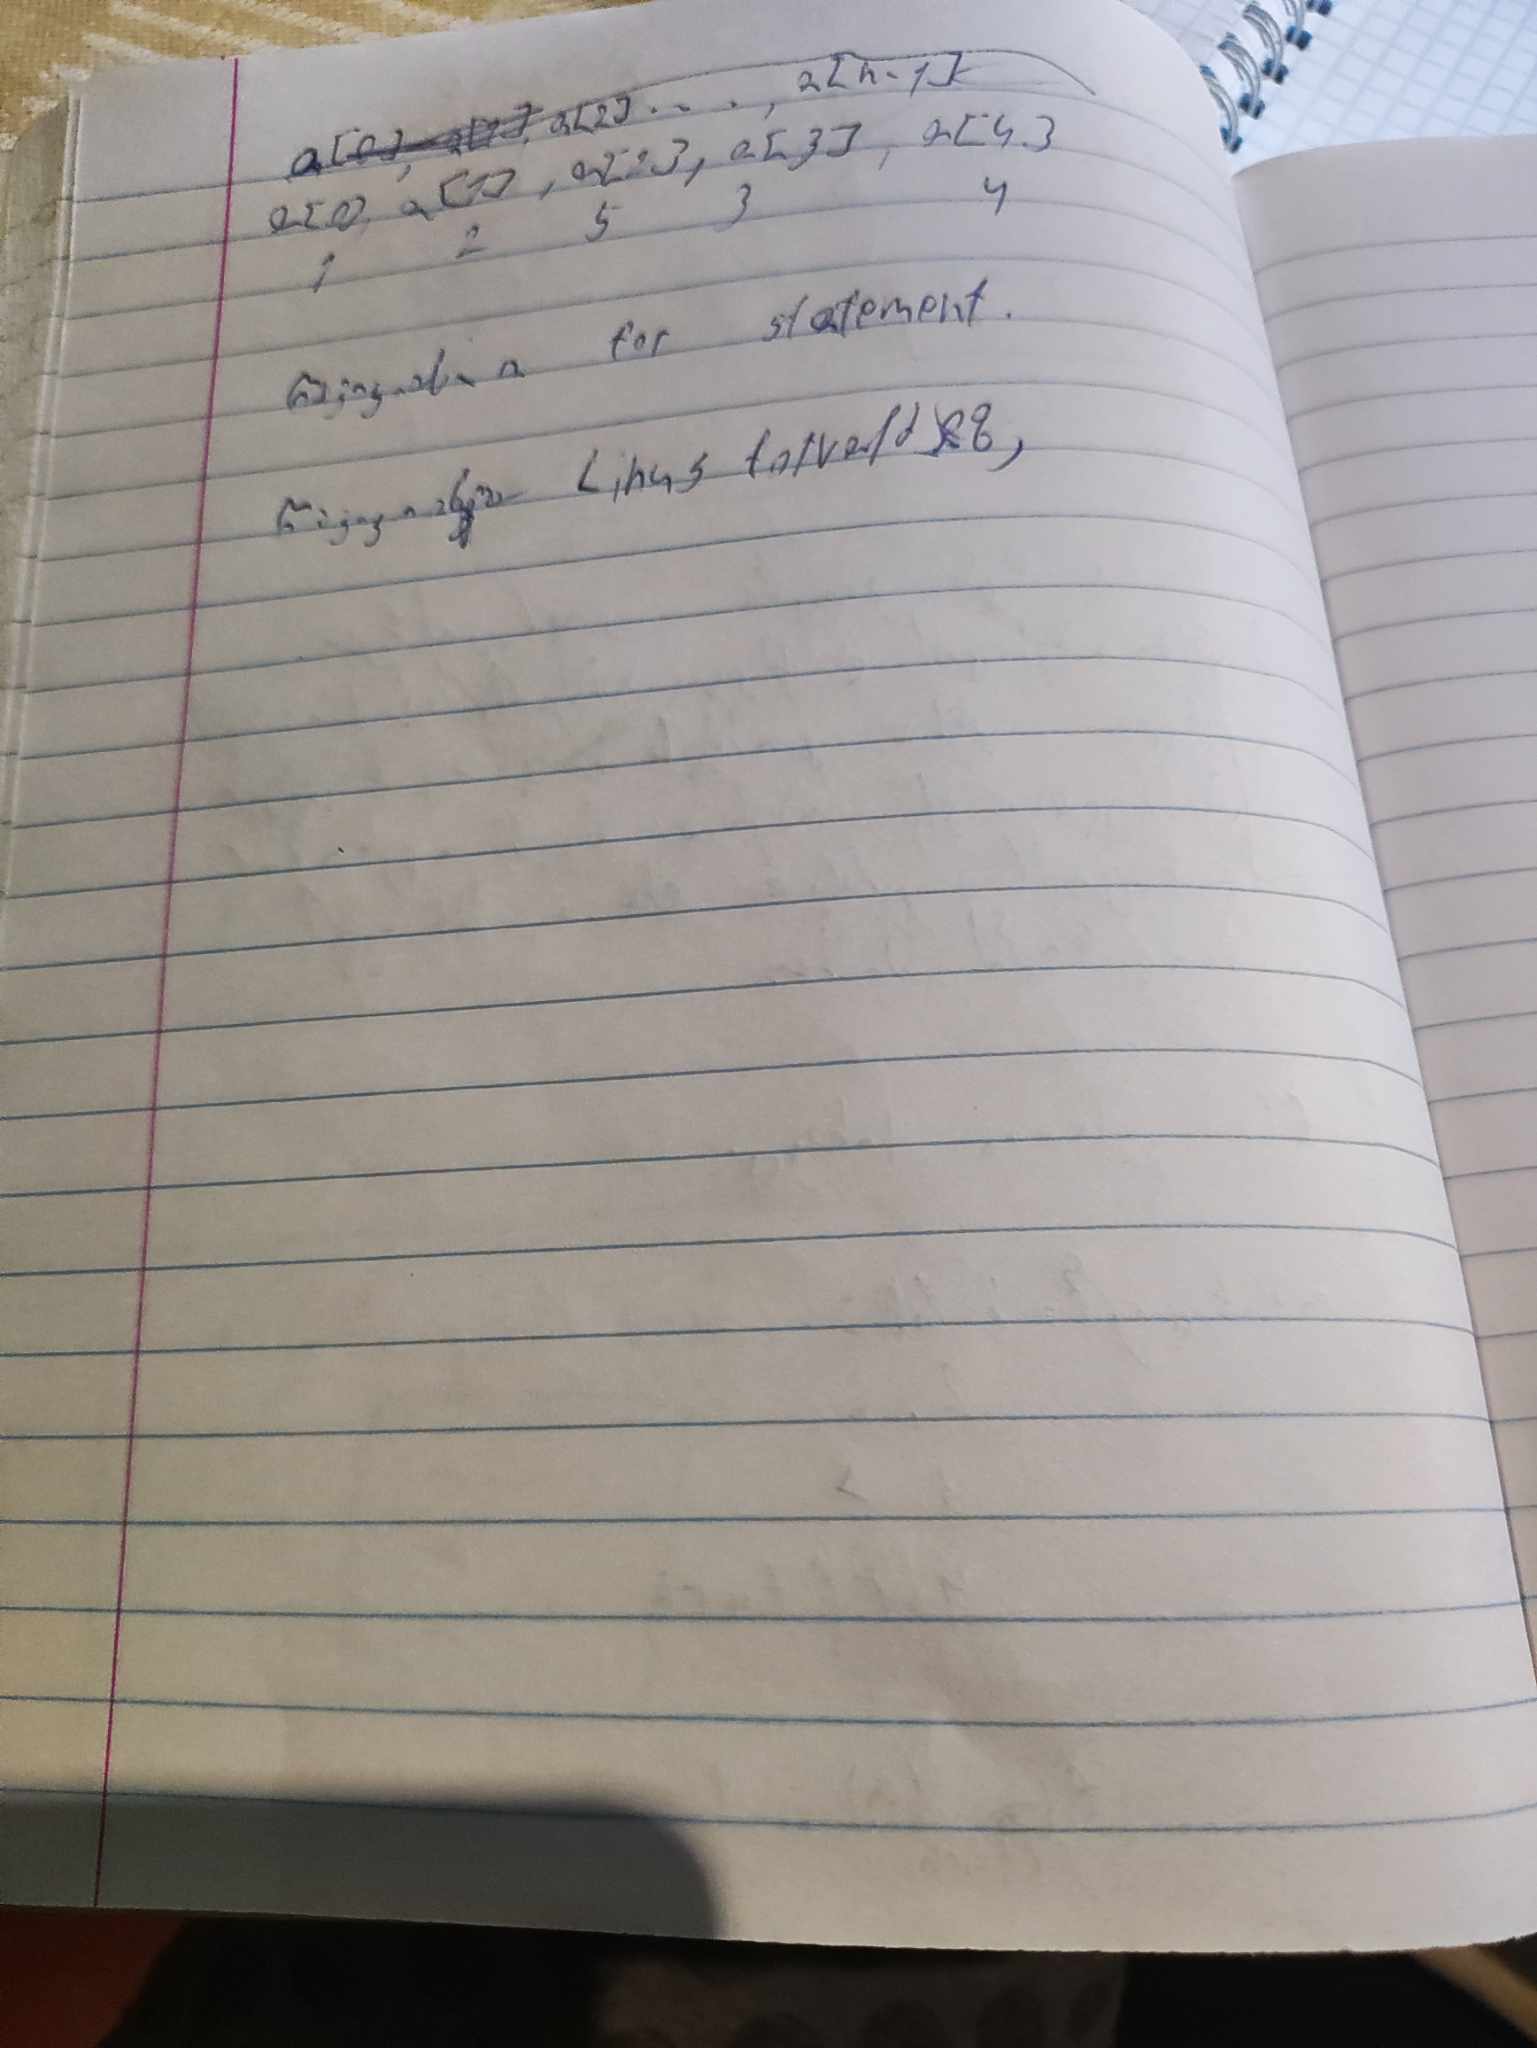 a[0], a[1], a[2] . . . , a[n-1]
a[0], a[1], a[2], a[3], a[4]
1 2 5 3 4
for statement.
Linus torvald